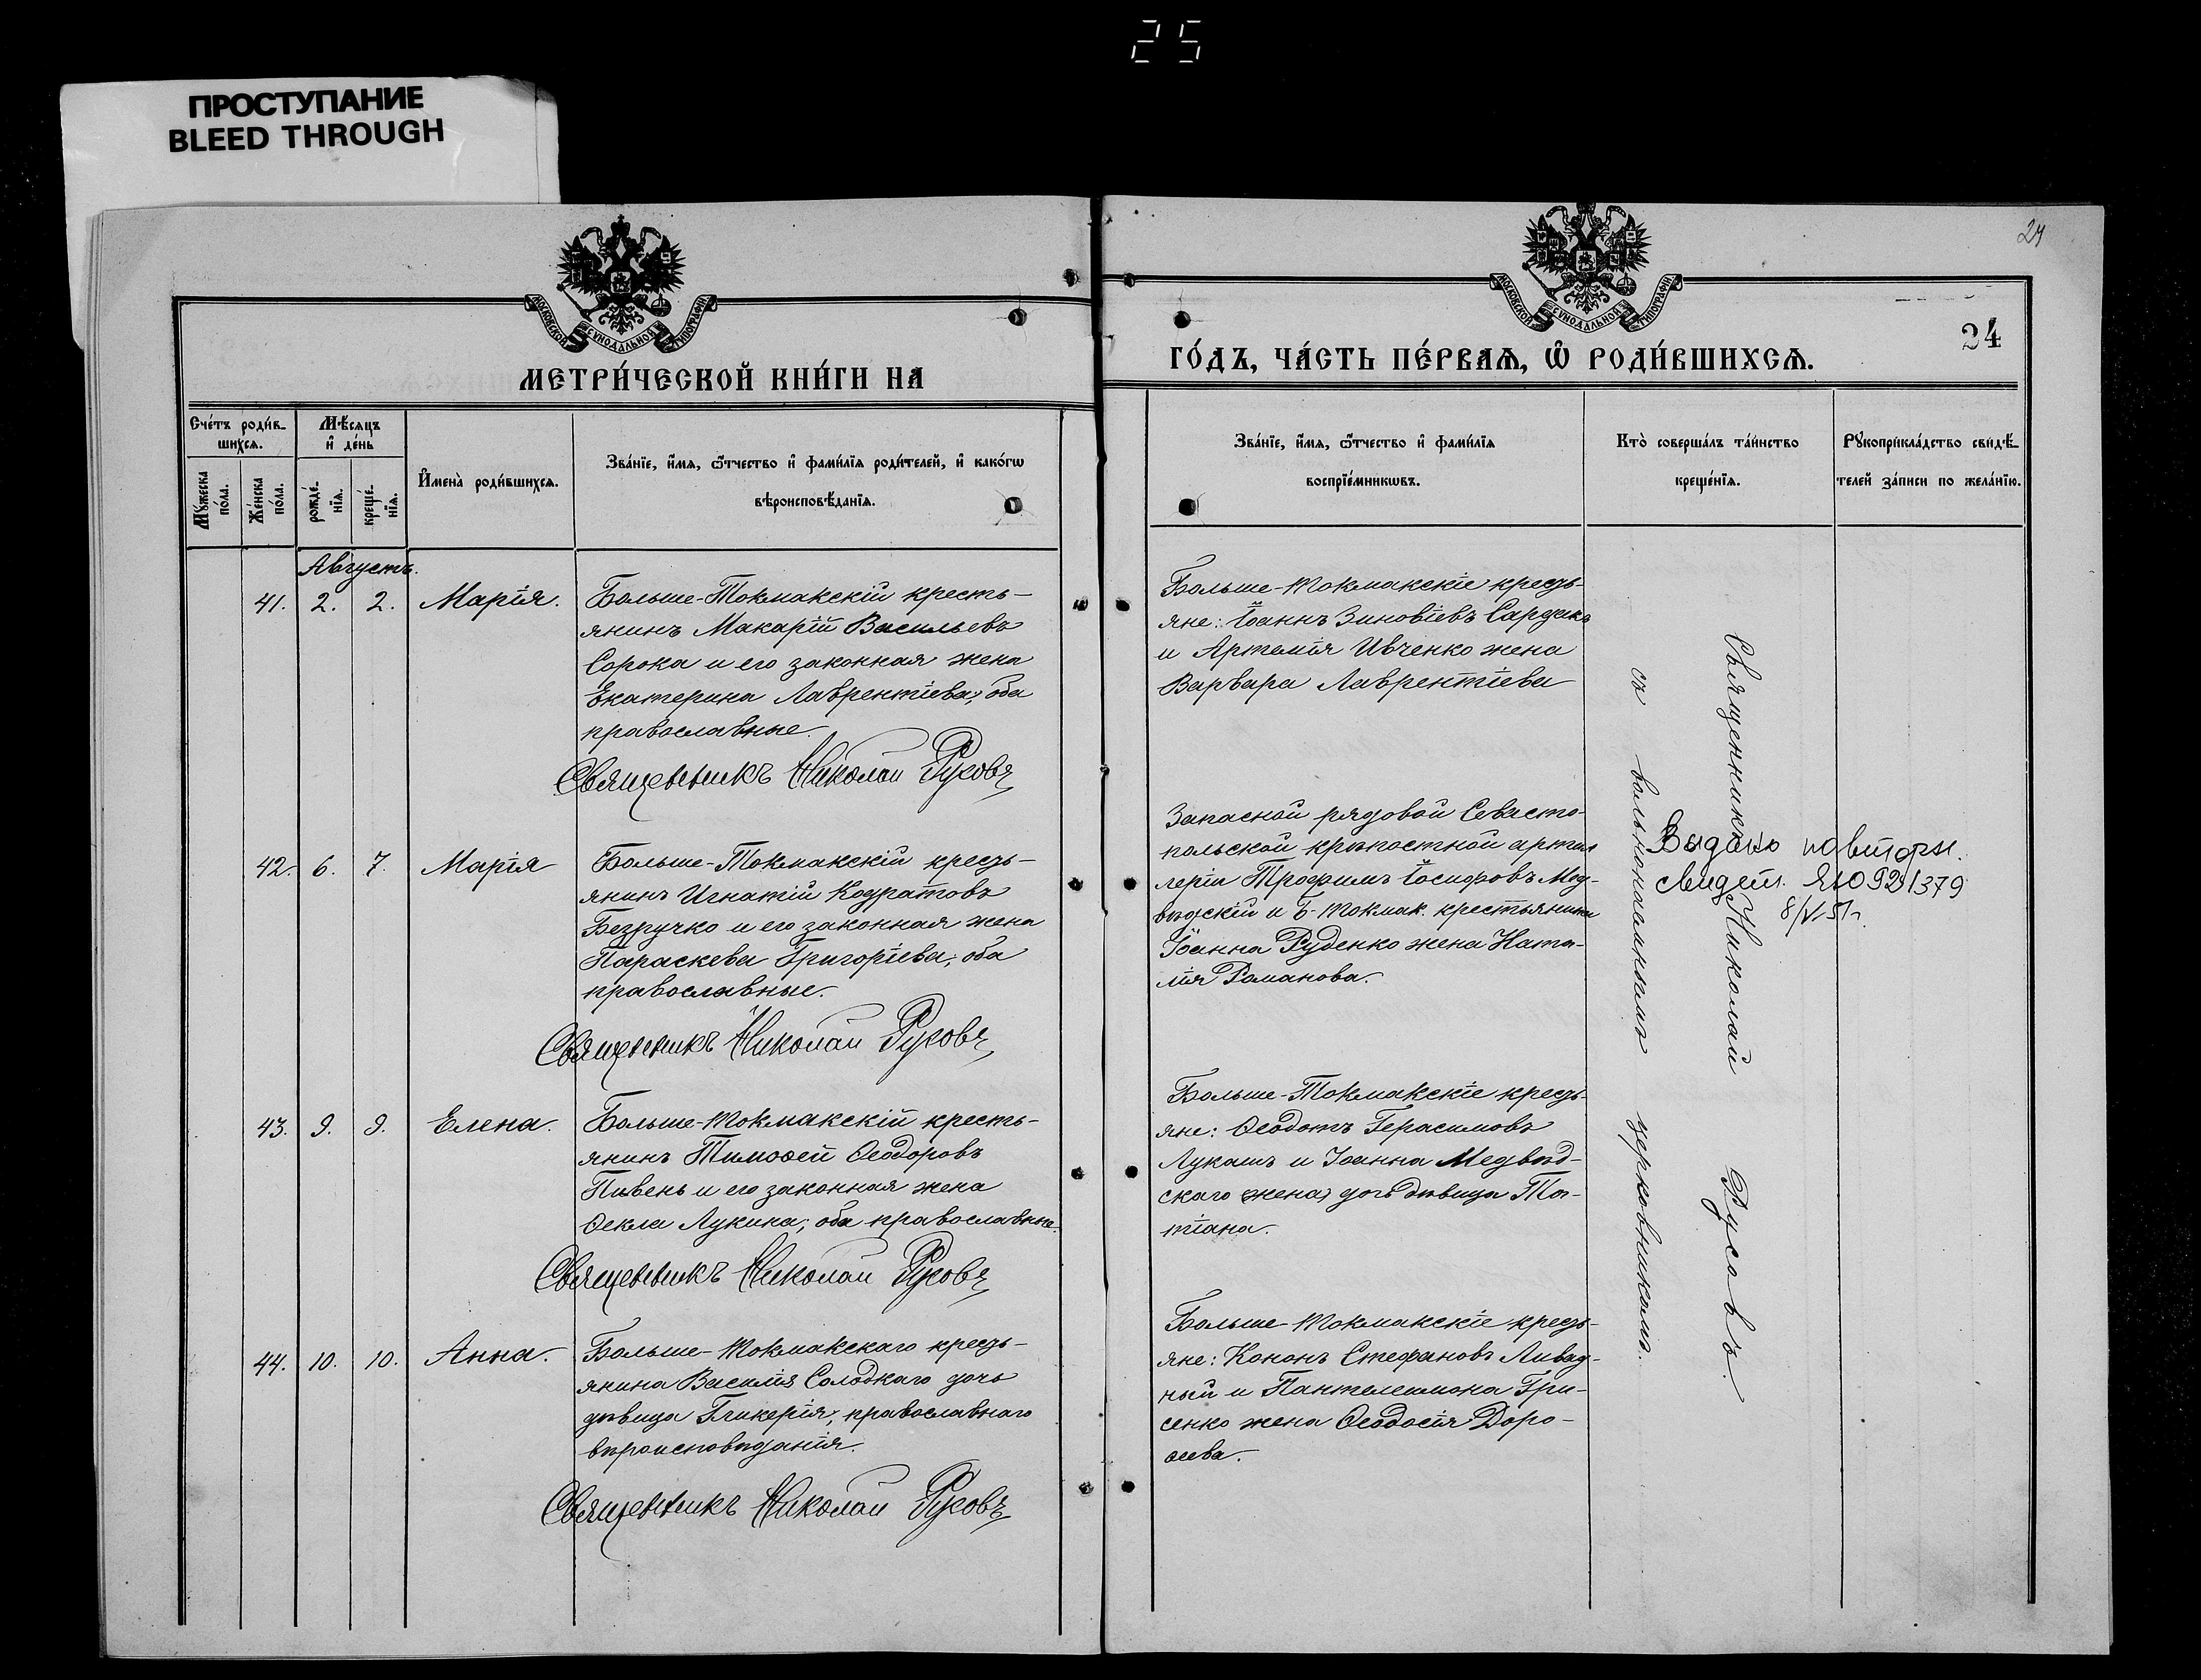 25
ПРОСТУПАНИЕ
BLEED THROUGH
24
24
МОСКОВСКОЙ СѴНОДАЛЬНОЙ ТИПОГРАФІИ
МОСКОВСКОЙ СѴНОДАЛЬНОЙ ТИПОГРАФІИ
МЕТРИ́ЧЕСКОЙ КНИ́ГИ НА
ГО́ДЪ, ЧА́СТЬ ПЕ́РВАѦ, Ѡ РОДИ́ВШИХСѦ.
Сче́тъ роди́в-
шихсѧ.
Мꙋ́жеска
по́ла.
Же́нска
по́ла.
Мѣ́сѧцъ
и҆ де́нь
рожде́-
нїѧ.
креще́-
нїѧ.
И҆мена̀ роди́вшихсѧ.
Зва́нїе, и҆́мѧ, ѻ҆́тчество и҆ фами́лїѧ роди́телей, и҆ како́гѡ
вѣроисповѣ́данїѧ.
Зва́нїе, и҆́мѧ, ѻ҆́тчество и҆ фами́лїѧ
воспрїе́мникѡвъ.
Кто̀ соверша́лъ та́инство
креще́нїѧ.
Рꙋкоприкла́дство свидѣ́-
телей за́писи по жела́нїю.
Августъ.
41. 2. 2. Марія.
Больше-Токмакскій кресть-
янинъ Макарій Васильевъ
Сорока и его законная жена
Екатерина Лаврентіева, оба
православные.
Священникъ Николай Русовъ
Больше-Токмакскіе кресть-
яне: Іоаннъ Зиновіевъ
и Артемія Ивченко жена
Варвара Лаврентіева
42. 6. 7. Марія
Больше-Токмакскій кресть-
янинъ Игнатій Кодратовъ
Безручко и его законная жена
Параскева Григоріева, оба
православные.
Священникъ Николай Русовъ
Запасной рядовой Севасто-
польской крѣпостной артил
леріи Трофимъ Іосифовъ Мед-
вѣдскій и Б-Токмак. крестьянина
Іоанна Руденко жена Ната-
лія Романова.
43. 9. 9. Елена.
Больше-Токмакскій кресть-
янинъ Тимоѳей Ѳеодоровъ
Пивень и его законная жена
Ѳекла Лукина; оба православные.
Священникъ Николай Русовъ
Больше-Токмакскіе кресть-
яне: Ѳеодотъ Герасимовъ
Лукашъ и Іоанна Медвѣд-
скаго (жена) дочь дѣвица Та-
тіана.
44. 10. 10. Анна.
Больше-Токмакскаго кресть-
янина Василія Солодкаго дочь
дѣвица Гликерія, православнаго
вѣроисповѣданія.
Священникъ Николай Русовъ
Больше-Токмакскіе кресть-
яне: Кононъ Стефановъ Ливад-
ный и Пантелеимона Гри-
сенко жена Ѳеодосія Доро-
ѳеева.
Священникъ Николай Русовъ.
съ вольнонаемнымъ церковникомъ.
Видано повторн.
свидет. 092379
8/VI 51 г.